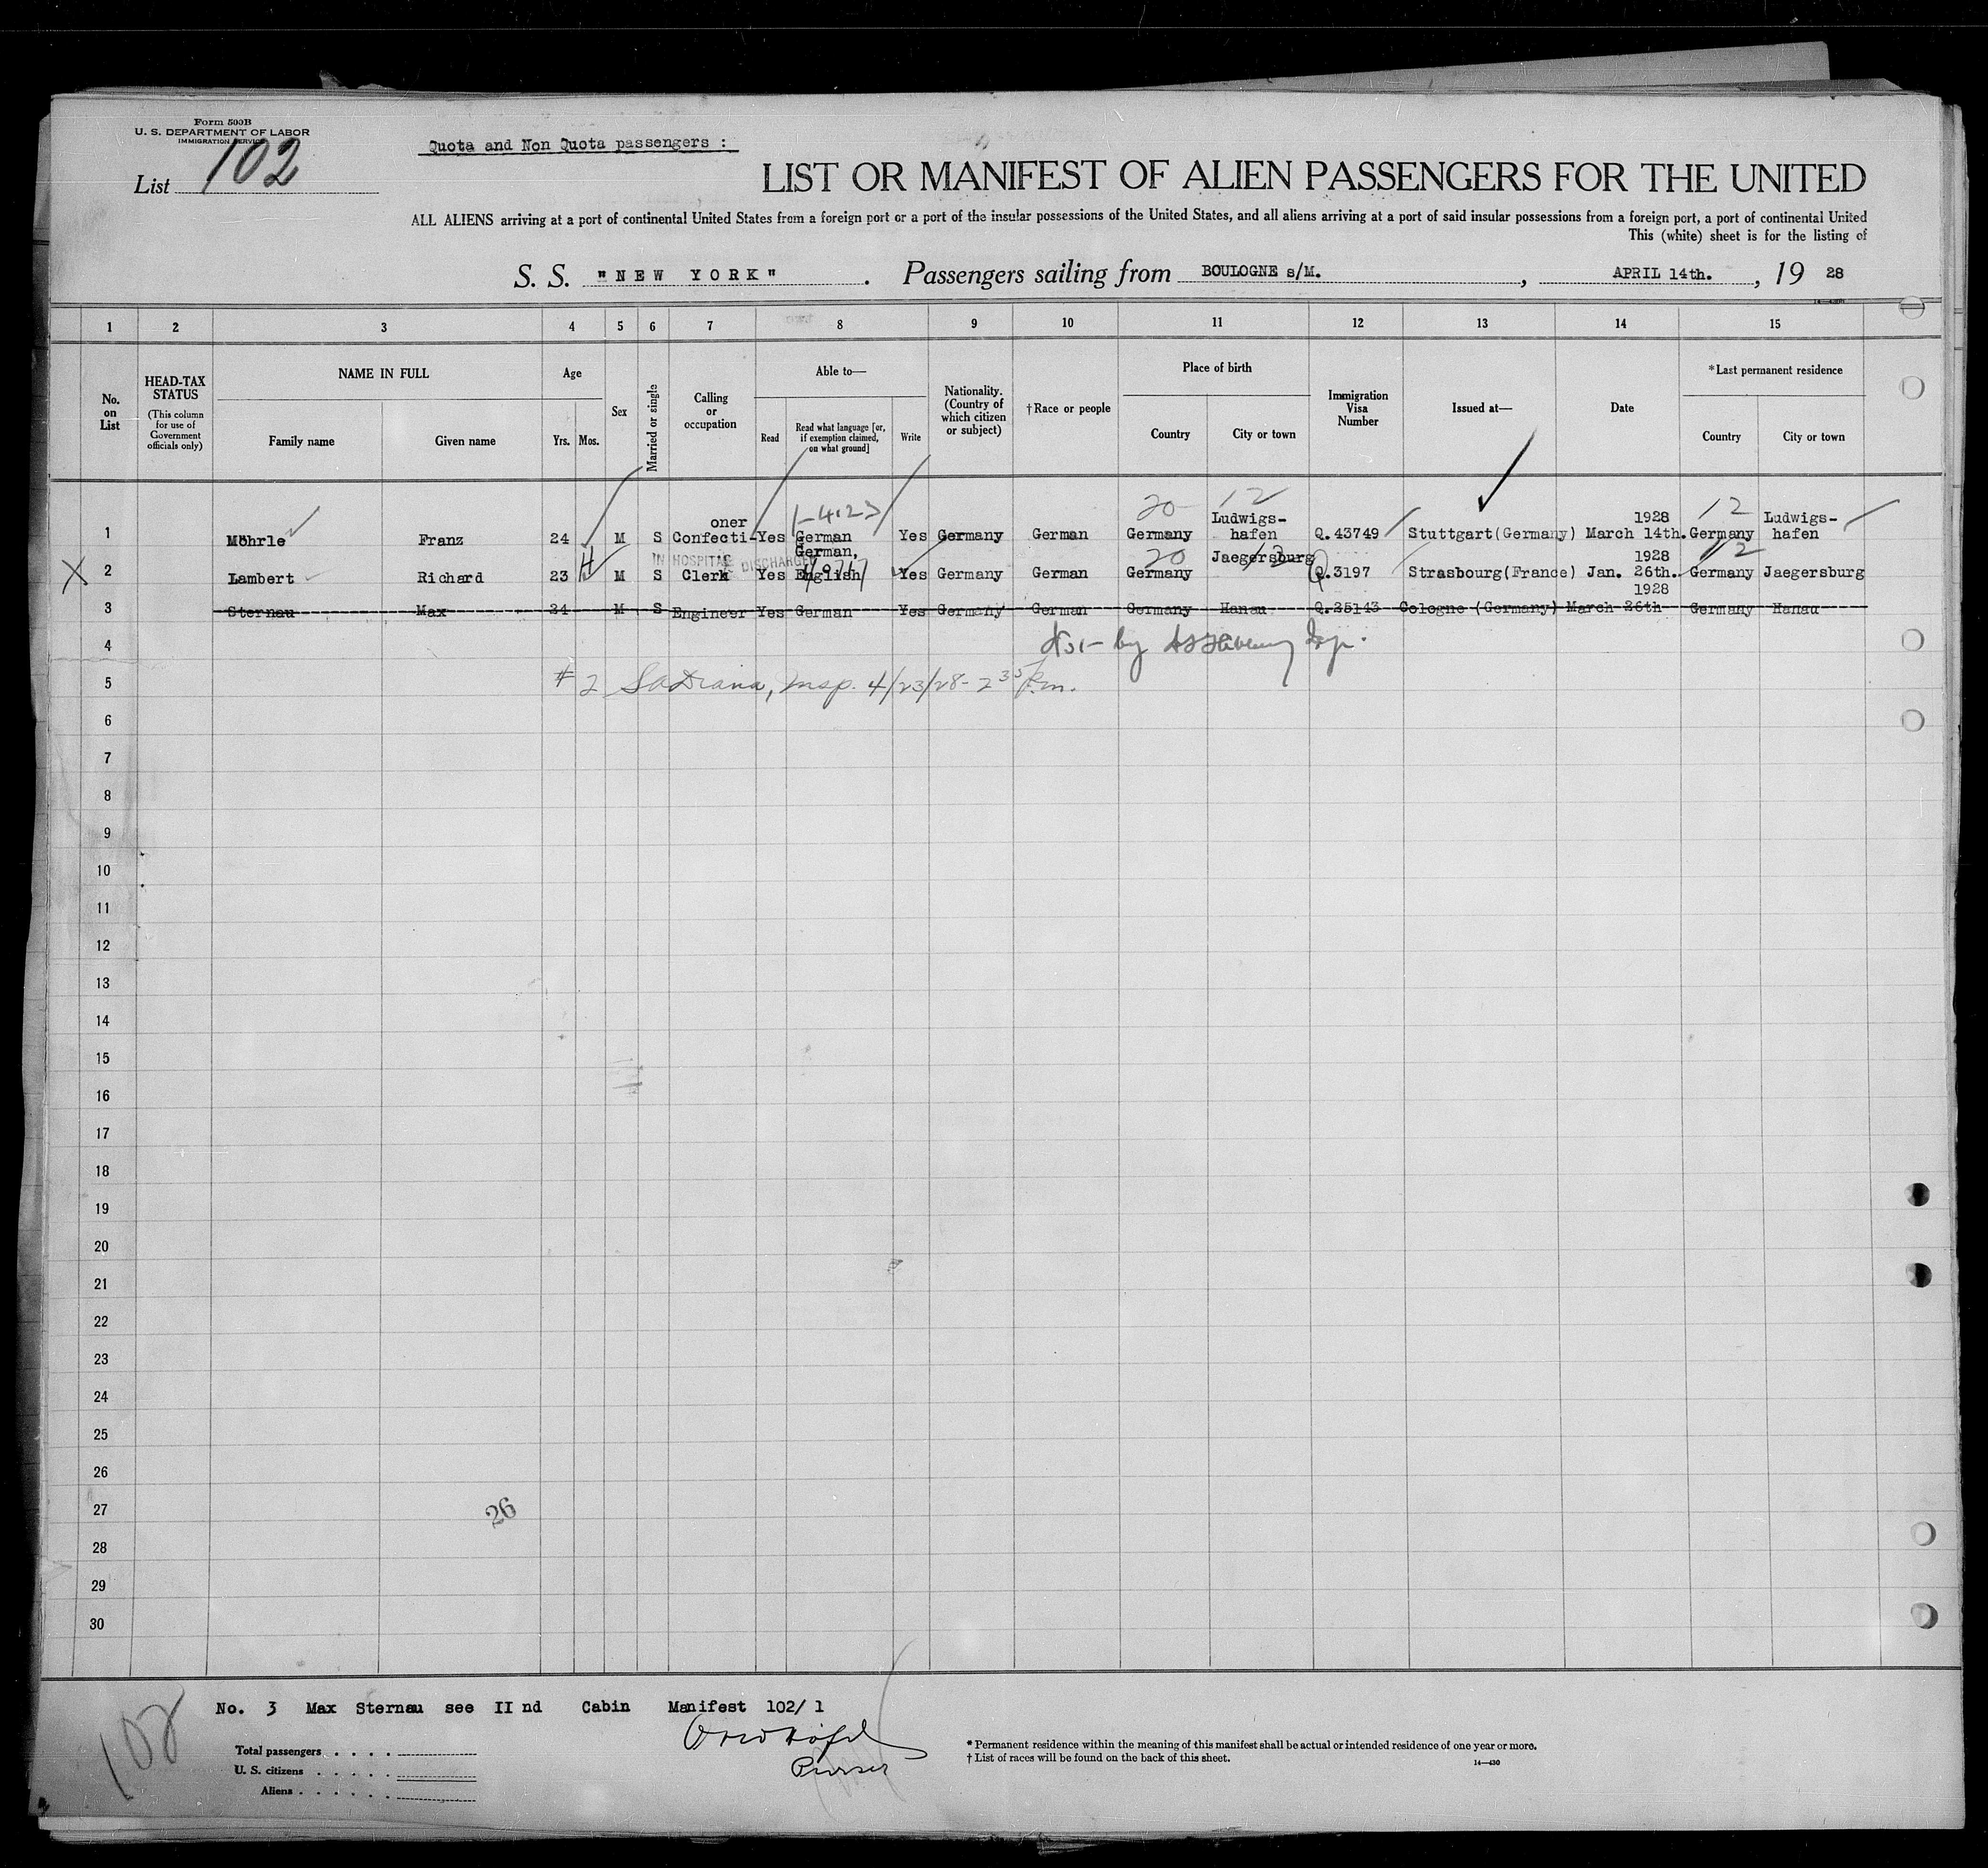 Form 500B
U. S. DEPARTMENT OF LABOR
IMMIGRATION SERVICE
List 102
Quota and Non Quota passengers :
LIST OR MANIFEST OF ALIEN PASSENGERS FOR THE UNITED
ALL ALIENS arriving at a port of continental United States from a foreign port or a port of the insular possessions of the United States, and all aliens arriving at a port of said insular possessions from a foreign port, a port of continental United
This (white) sheet is for the listing of
S. S. "NEW YORK" . Passengers sailing from BOULOGNE s/M. , APRIL 14th. , 19 28
14—430
1 2 3 4 5 6 7 8 9 10 11 12 13 14 15
No. on List
HEAD-TAX STATUS
(This column for use of Government officials only)
NAME IN FULL
Family name
Given name
Age
Yrs. Mos.
Sex
Married or single
Calling or occupation
Able to—
Read
Read what language [or, if exemption claimed, on what ground]
Write
Nationality. (Country of which citizen or subject)
†Race or people
Place of birth
Country
City or town
Immigration Visa Number
Issued at—
Date
*Last permanent residence
Country
City or town
20 12 12
1 Möhrle Franz 24 M S Confecti-oner Yes German Yes Germany German Germany Ludwigs-hafen Q.43749 Stuttgart(Germany) March 14th. 1928 Germany Ludwigs-hafen
IN HOSPITAL DISCHARGED
20 12 12
X 2 Lambert Richard 23 H M S Clerk Yes German, English Yes Germany German Germany Jaegersburg Q.3197 Strasbourg(France) Jan. 26th. 1928 Germany Jaegersburg
3 Sternau Max 24 M S Engineer Yes German Yes Germany German Germany Hanau Q.25143 Cologne (Germany) March 26th 1928 Germany Hanau
4 by
5 #2 Insp. 4/23/28- 2 35 P.m.
6
7
8
9
10
11
12
13
14
15
16
17
18
19
20
21
22
23
24
25
26
27 26
28
29
30
No. 3 Max Sternau see II nd Cabin Manifest 102/ 1
108
Purser
Total passengers
U. S. citizens
Aliens
* Permanent residence within the meaning of this manifest shall be actual or intended residence of one year or more.
† List of races will be found on the back of this sheet.
14—430